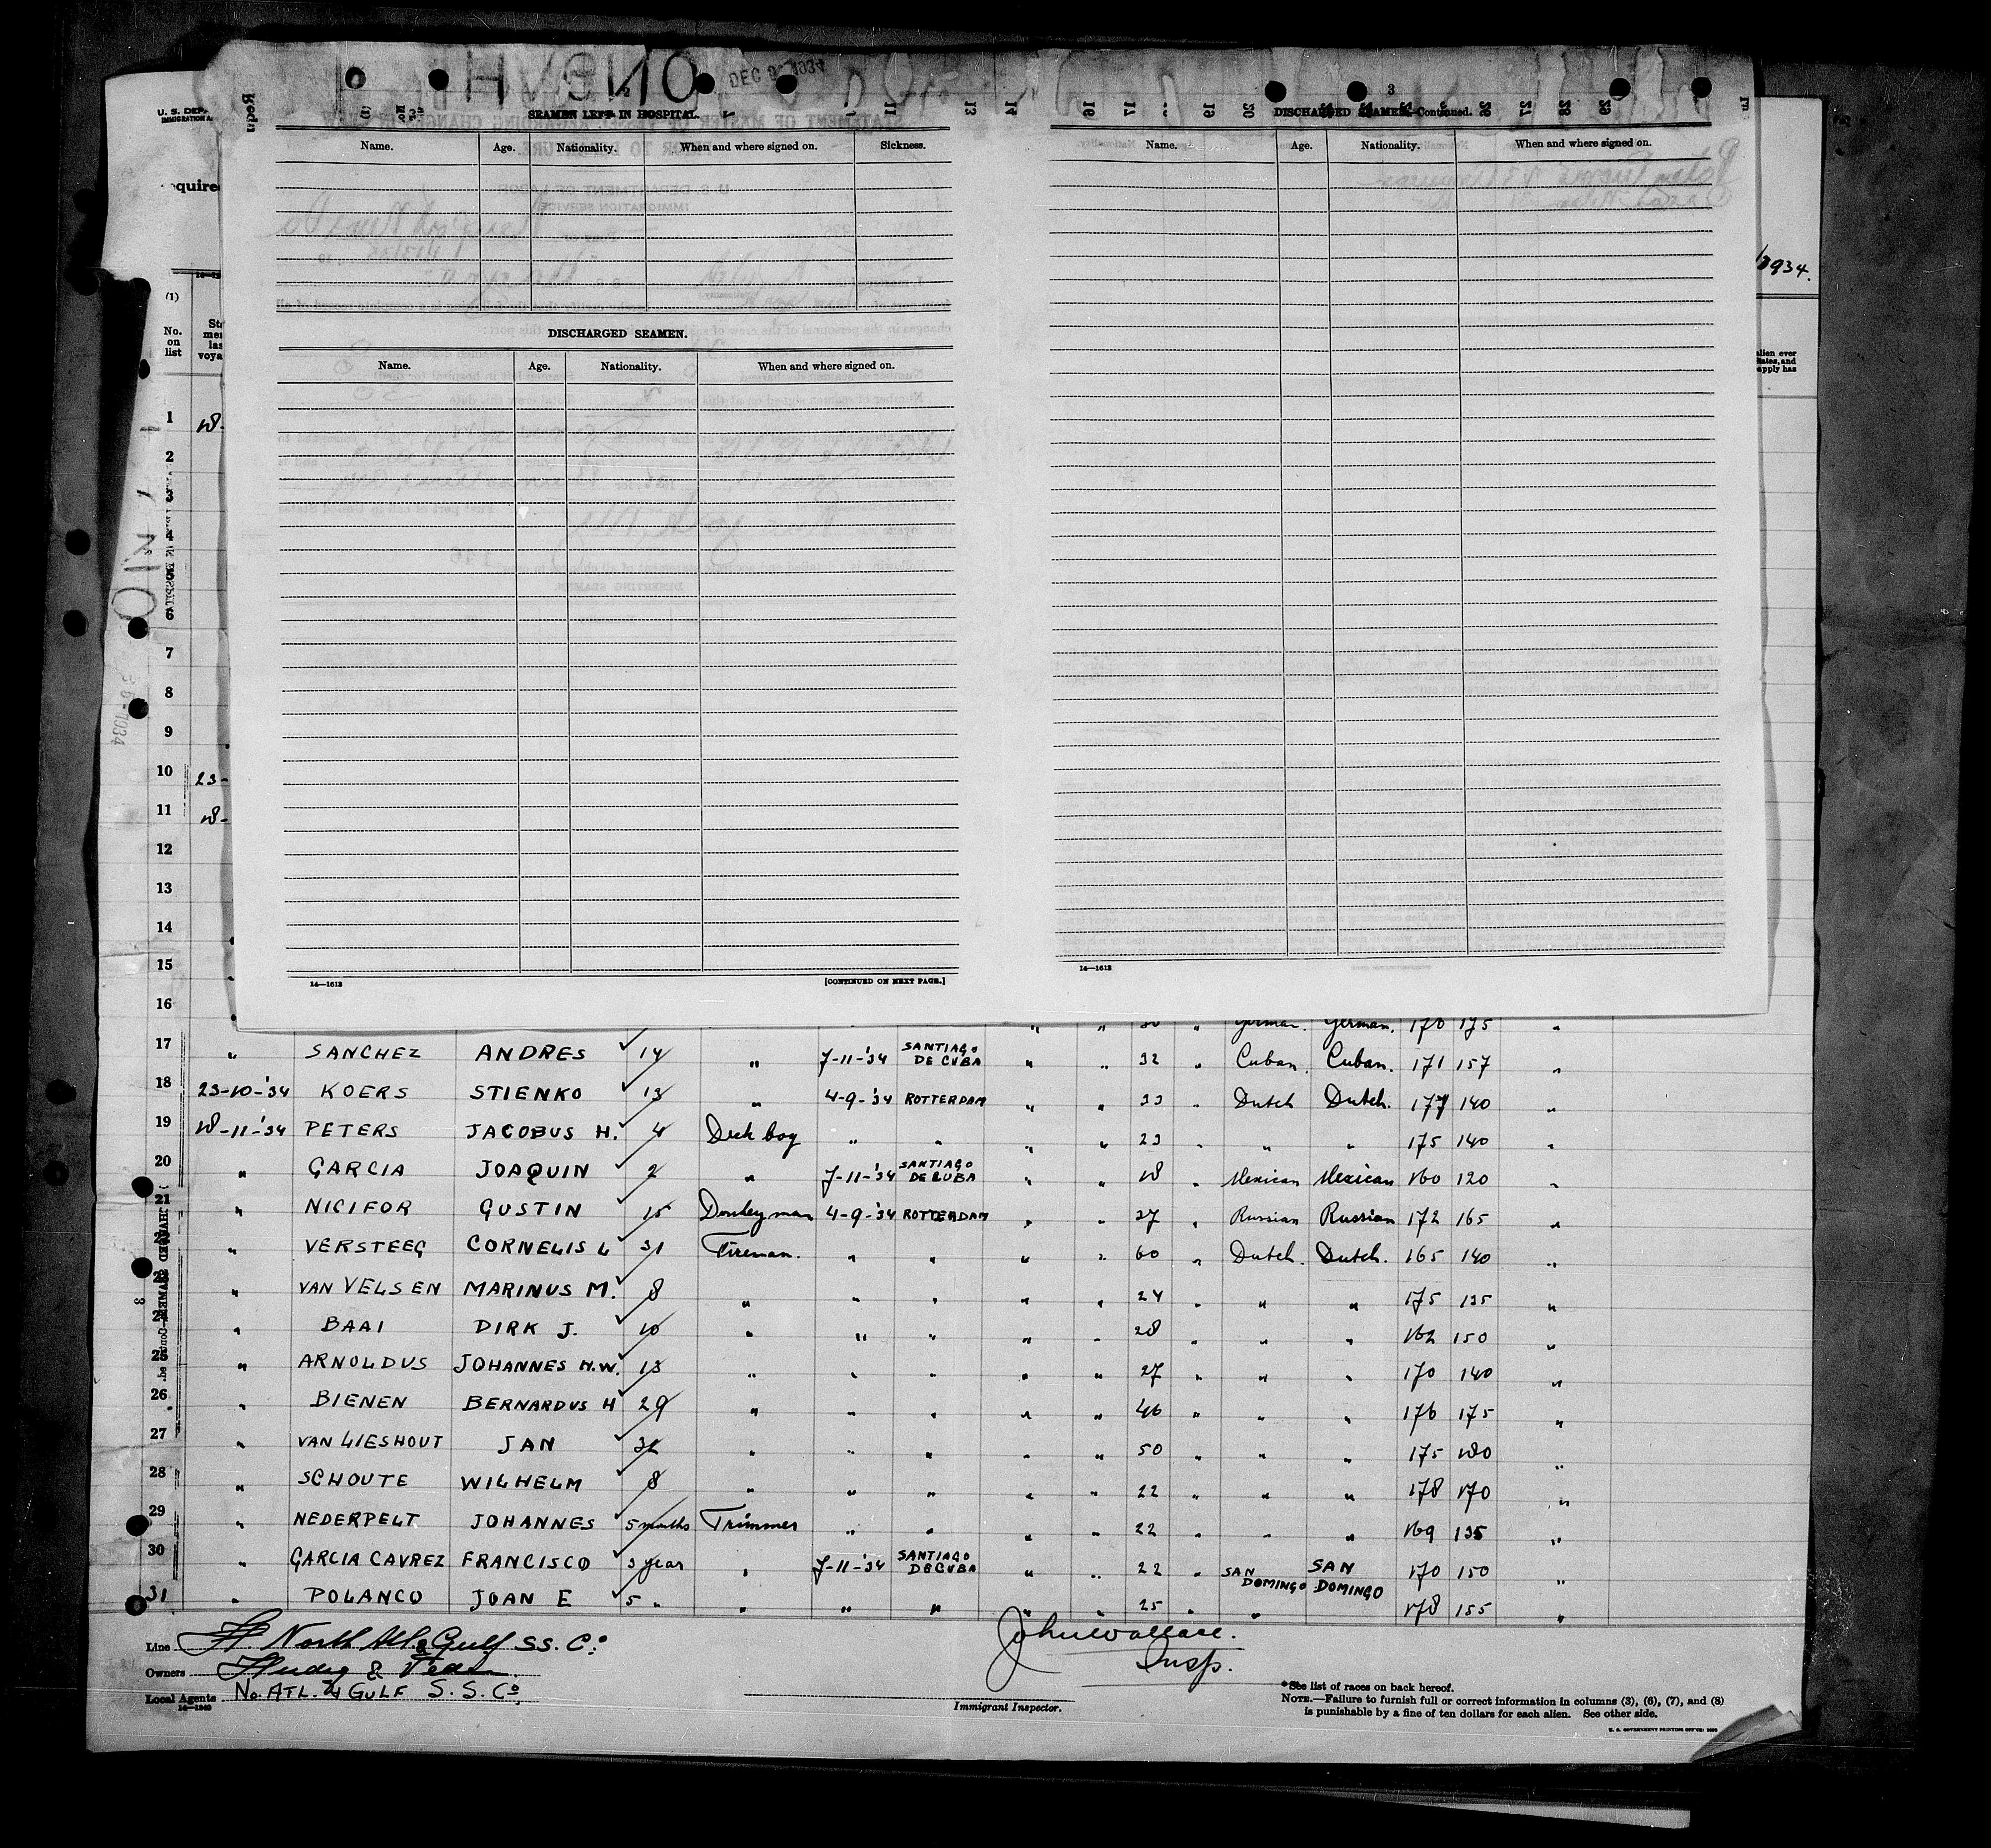 U. S. DEP
IMMIGRATION
OIVGNO
DEC 3 1934
2
SEAMEN LEFT IN HOSPITAL.
Name. Age. Nationality. When and where signed on. Sickness.
DISCHARGED SEAMEN.
Name. Age. Nationality. When and where signed on.
14—1613 [CONTINUED ON NEXT PAGE.]
3
DISCHARGED SEAMEN—Continued.
Name. Age. Nationality. When and where signed on.
14—1613
equire
1934.
alien ever
States, and
apply has
(1)
No.
on
list
1
2
3
4
6
7
8
9
10 23-
11
12
13
14
15
16 German. German. 170 175 "
17 " SANCHEZ ANDRES 14 " 7-11-'34 SANTIAGO DE CUBA " " 32 " Cuban. Cuban. 171 157 "
18 23-10-'34 KOERS STIENKO 13 " 4-9-'34 ROTTERDAM " " 33 " Dutch Dutch. 177 140 "
19 18-11-'34 PETERS JACOBUS H. 4 Deck boy " " " " 23 " " " 175 140 "
20 " GARCIA JOAQUIN 2 " 7-11-'34 SANTIAGO DE CUBA " " 18 " Mexican Mexican 160 120 "
21 " NICIFOR GUSTIN 15 Donkeyman 4-9-'34 ROTTERDAM " " 37 " Russian Russian 172 165 "
22 " VERSTEEG CORNELIS L 31 Fireman. " " " " 60 " Dutch. Dutch. 165 140 "
23 " VAN VELSEN MARINUS M. 8 " " " " " 24 " " " 175 135 "
24 " BAAI DIRK J. 10 " " " " " 28 " " " 162 150 "
25 " ARNOLDUS JOHANNES H.W. 13 " " " " " 27 " " " 170 140 "
26 " BIENEN BERNARDUS H 29 " " " " " 46 " " " 176 175 "
27 " VAN LIESHOUT JAN 32 " " " " " 50 " " " 175 180 "
28 " SCHOUTE WILHELM 8 " " " " " 22 " " " 178 170 "
29 " NEDERPELT JOHANNES 5 months Trimmer " " " " 22 " " " 169 135 "
30 " GARCIA CAVREZ FRANCISCO 3 year " 7-11-'34 SANTIAGO DE CUBA " " 22 " SAN DOMINGO SAN DOMINGO 170 150 "
31 " POLANCO JOAN E 5 " " " " " " 25 " " 178 155 "
Line H. North Atl & Gulf SS. Co.
Owners Hudig & Veder
Local Agents No. ATL. & GULF S. S. Co.
14—1240
John Wallace.
Insp.
Immigrant Inspector.
*See list of races on back hereof.
NOTE.—Failure to furnish full or correct information in columns (3), (6), (7), and (8)
is punishable by a fine of ten dollars for each alien. See other side.
U. S. GOVERNMENT PRINTING OFFICE